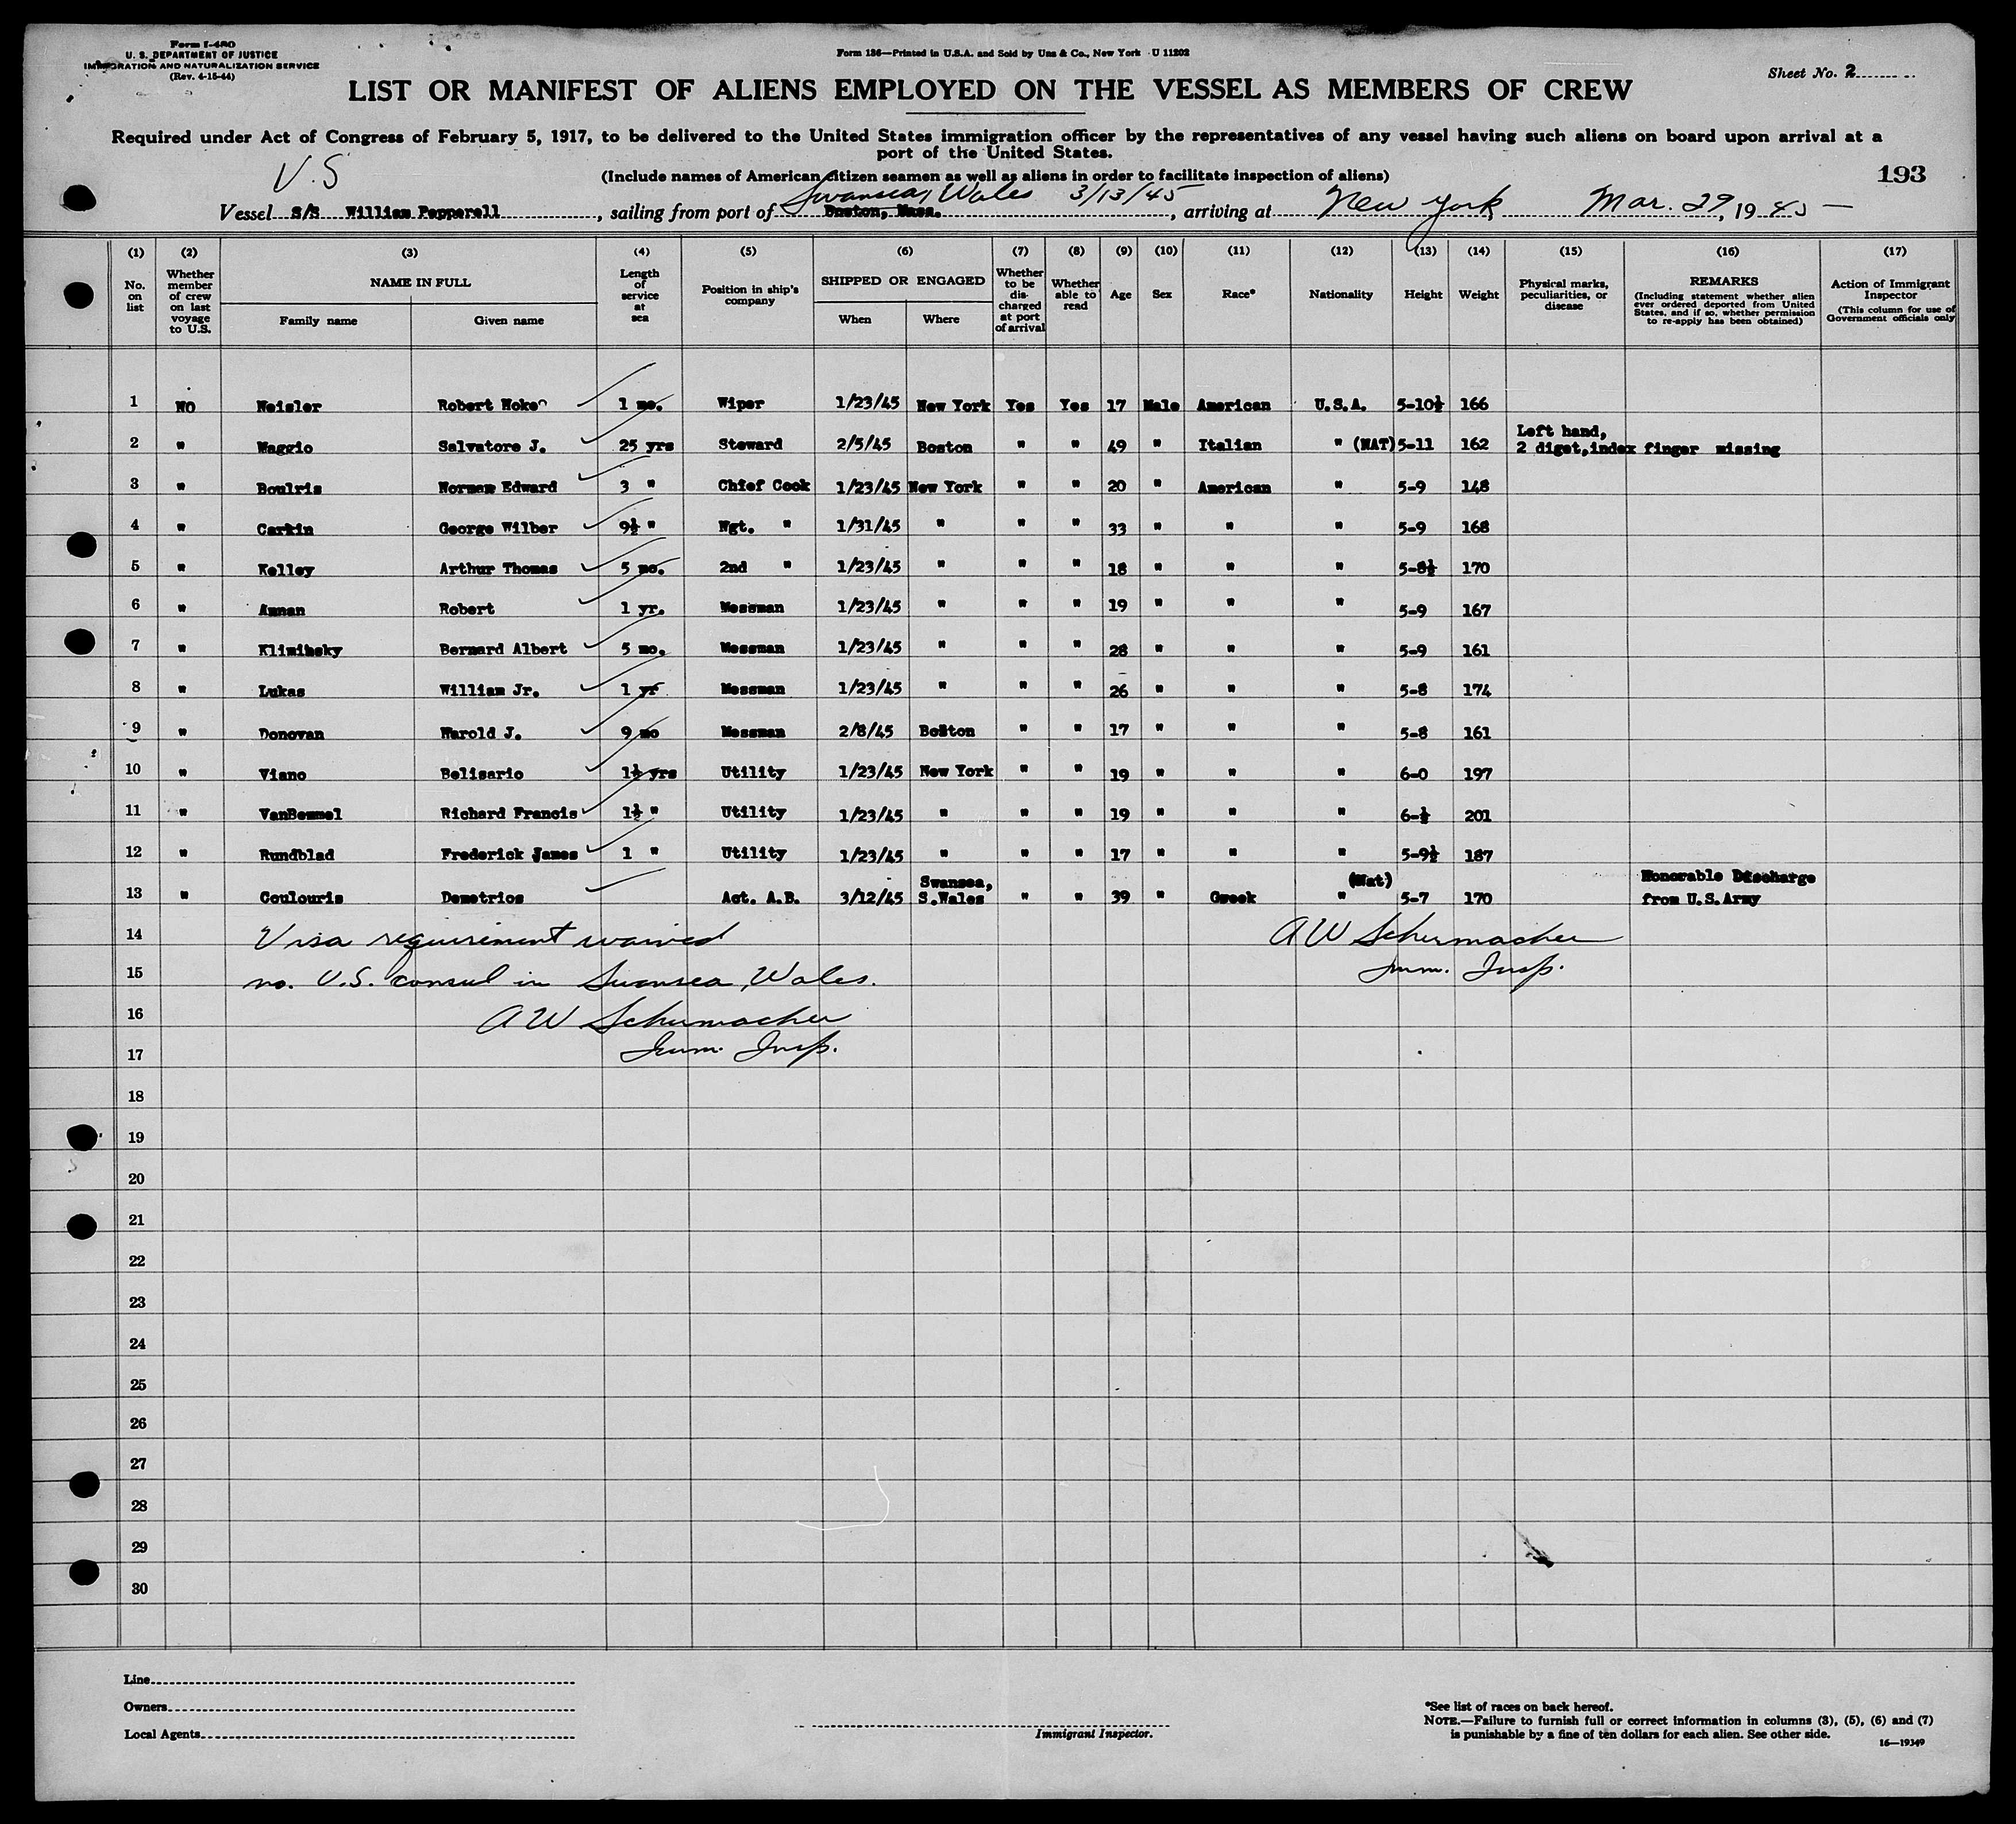 Form I-480
U. S. DEPARTMENT OF JUSTICE
IMMIGRATION AND NATURALIZATION SERVICE
(Rev. 4-15-44)
Form 136—Printed in U.S.A. and Sold by Unz & Co., New York U 11202
Sheet No. 2
LIST OR MANIFEST OF ALIENS EMPLOYED ON THE VESSEL AS MEMBERS OF CREW
Required under Act of Congress of February 5, 1917, to be delivered to the United States immigration officer by the representatives of any vessel having such aliens on board upon arrival at a
port of the United States.
(Include names of American citizen seamen as well as aliens in order to facilitate inspection of aliens)
193
V.S
Swansea, Wales 3/13/45
Vessel S/S William Pepperell, sailing from port of Boston, Mass., arriving at New York Mar. 29, 1945
(1) (2) (3) (4) (5) (6) (7) (8) (9) (10) (11) (12) (13) (14) (15) (16) (17)
No. on list
Whether member of crew on last voyage to U.S.
NAME IN FULL
Family name Given name
Length of service at sea
Position in ship's company
SHIPPED OR ENGAGED
When Where
Whether to be discharged at port of arrival
Whether able to read
Age
Sex
Race*
Nationality
Height
Weight
Physical marks, peculiarities, or disease
REMARKS
(Including statement whether alien ever ordered deported from United States, and if so, whether permission to re-apply has been obtained)
Action of Immigrant Inspector
(This column for use of Government officials only
1 NO Neisler Robert Hoke 1 mo. Wiper 1/23/45 New York Yes Yes 17 Male American U.S.A. 5-10½ 166
Left hand,
2 " Maggio Salvatore J. 25 yrs Steward 2/5/45 Boston " " 49 " Italian " (NAT) 5-11 162 2 diget,index finger missing
3 " Boulris Norman Edward 3 " Chief Cook 1/23/45 New York " " 20 " American " 5-9 148
4 " Carkin George Wilber 9½ " Ngt. " 1/31/45 " " " 33 " " " 5-9 168
5 " Kelley Arthur Thomas 5 mo. 2nd " 1/23/45 " " " 18 " " " 5-8½ 170
6 " Annan Robert 1 yr. Messman 1/23/45 " " " 19 " " " 5-9 167
7 " Bernard Albert 5 mo. Messman 1/23/45 " " " 28 " " " 5-9 161
8 " Lukas William Jr. 1 yr Messman 1/23/45 " " " 26 " " " 5-8 174
9 " Donovan Harold J. 9 mo Messman 2/8/45 Boston " " 17 " " " 5-8 161
10 " Viano Belisario 1½ yrs Utility 1/23/45 New York " " 19 " " " 6-0 197
11 " VanBemmel Richard Francis 1½ " Utility 1/23/45 " " " 19 " " " 6-½ 201
12 " Rundblad Frederick James 1 " Utility 1/23/45 " " " 17 " " " 5-9½ 187
Swansea, (Nat) Honorable Discharge
13 " Coulouris Demetrios Act. A.B. 3/12/45 S.Wales " " 39 " Greek " 5-7 170 from U.S.Army
14 Visa requirement waived A W Schumacher
15 no. U.S. consul in Swansea, Wales. Imm. Insp.
16 A W Schumacher
17 Imm. Insp.
18
19
20
21
22
23
24
25
26
27
28
29
30
Line
Owners
Local Agents
Immigrant Inspector.
*See list of races on back hereof.
NOTE.—Failure to furnish full or correct information in columns (3), (5), (6) and (7)
is punishable by a fine of ten dollars for each alien. See other side.
16—19349